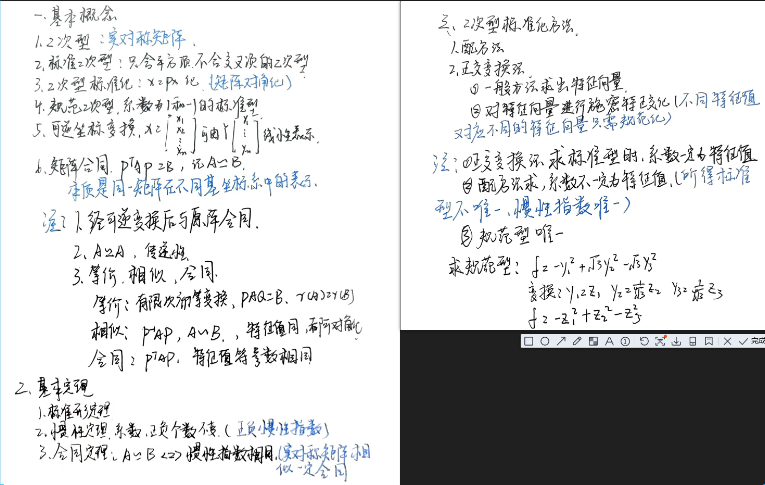 一.基本概念
1.2次型:实对称矩阵.
2.标准2次型:只含平方项,不含交叉项的2次型
3.2次型标准化:x=Py 化.(矩阵对角化)
4.规范2次型,系数为1和-1的标准型
5.可逆坐标变换,x= [x1 x2 ⋮ xn] 可由Y [ ⋮ yn] 线性表示.
6.矩阵合同. PᵀAP=B,记A≃B.
本质是同一矩阵在不同基坐标系中的表示.
注:1.经可逆变换后与原阵合同.
2.A≃A,传递性.
3.等价.相似,合同.
等价:有限次初等变换,PAQ=B. r(A)=r(B)
相似:P⁻¹AP,A∽B.,特征值同,可对角化
合同:PᵀAP,特征值符号数相同
2.基本定理
1.标准形定理
2.惯性定理.系数,正负个数不变.(正负惯性指数)
3.合同定理:A≃B<=>惯性指数相同.(实对称矩阵相
似一定合同
三、2次型标准化方法.
1.配方法
2.正交变换法.
①一般方法求出特征向量.
②对特征向量进行施密特正交化(不同特征值
对应不同的特征向量只需规范化)
注:①正交变换法求标准型时,系数一定为特征值
②配方法求,系数不一定为特征值.(所得标准
型不唯一,惯性指数唯一)
③规范型唯一
求规范型: f=-y₁²+√3y₂²-√3y₃²
变换:y₁=z₁ y₂= z₂ y₃= z₃
f=-z₁²+z₂²-z₃²
完成